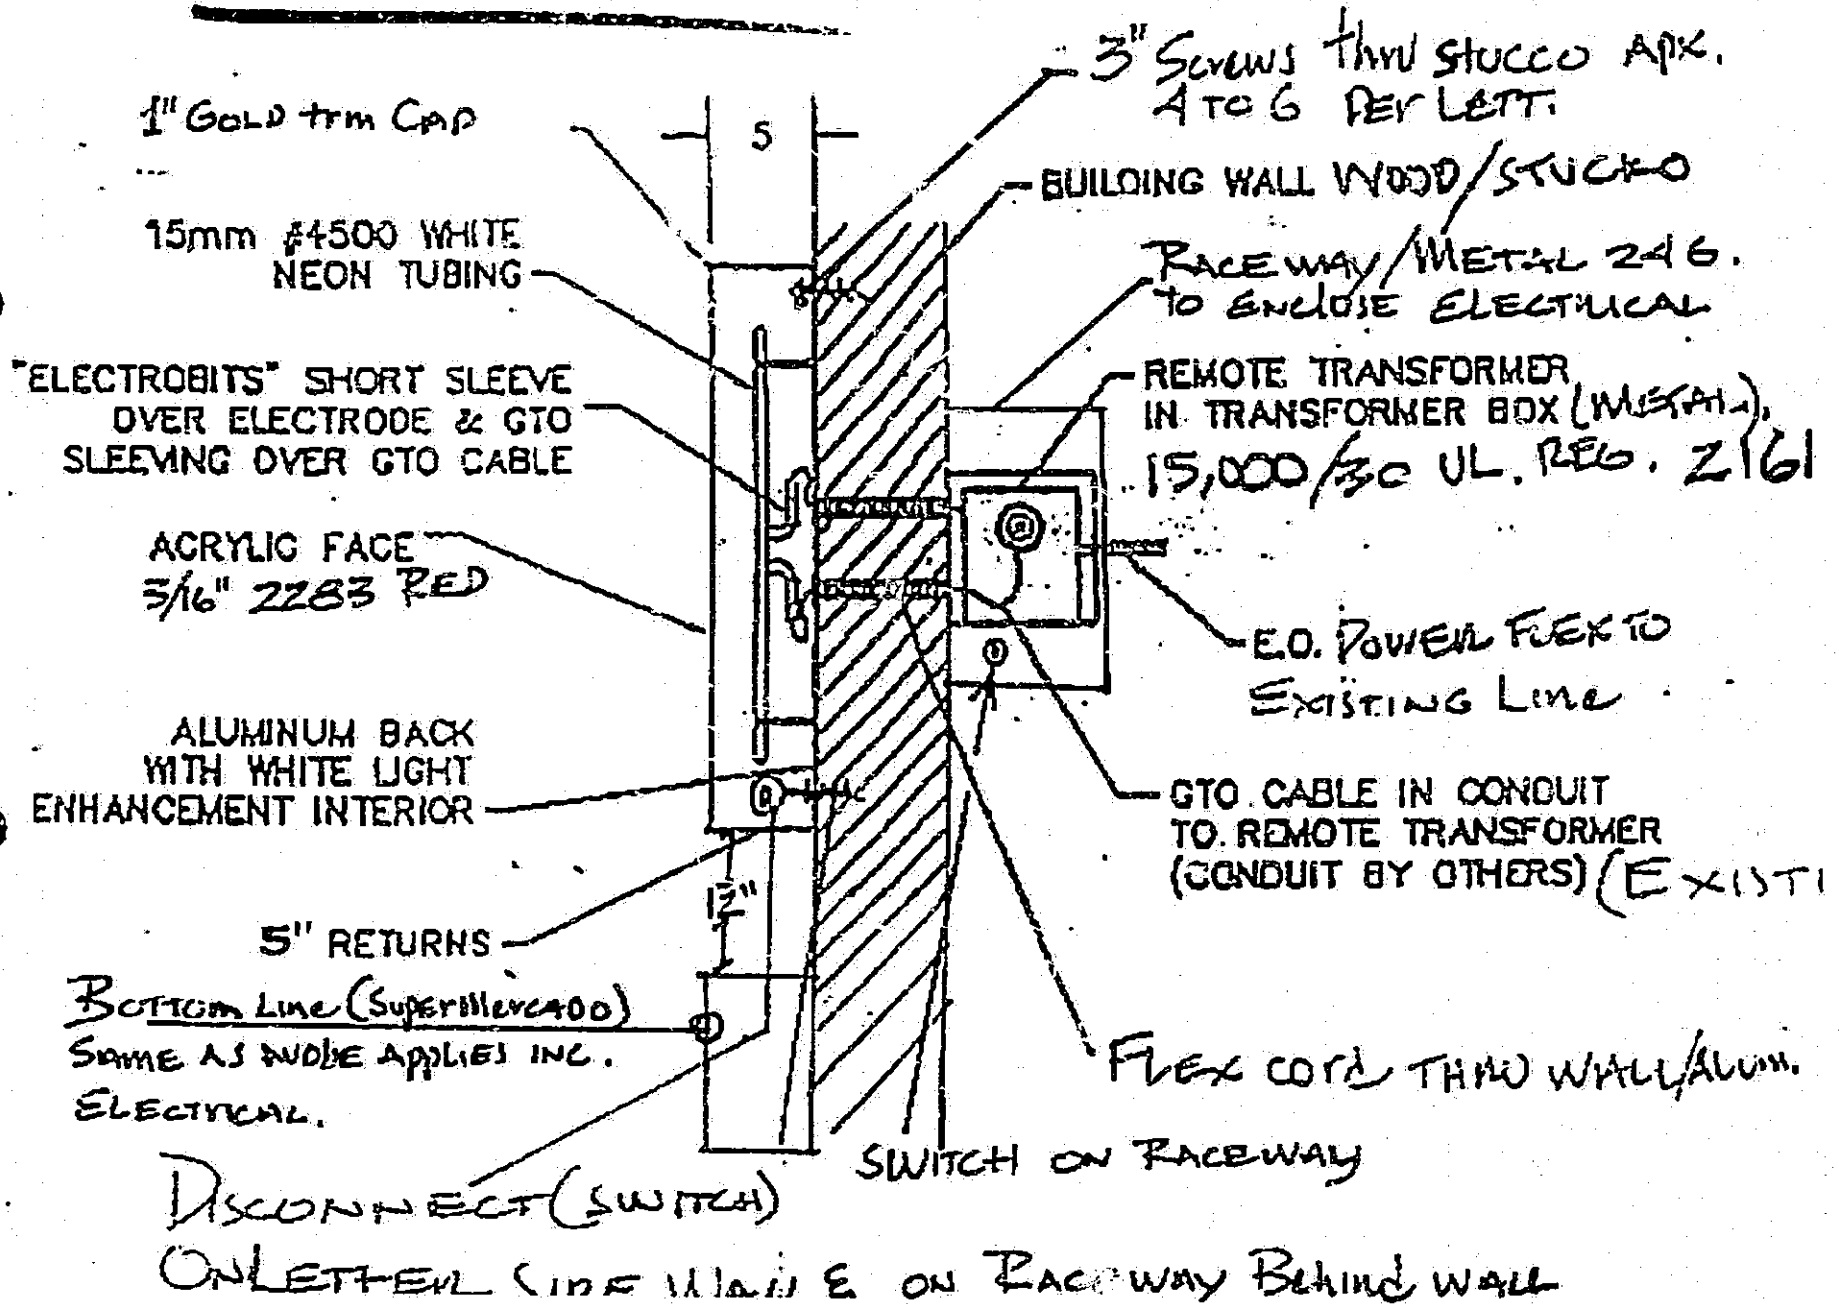 1" GOLD trm CAP
15mm #4500 WHITE
NEON TUBING
"ELECTROBITS" SHORT SLEEVE
OVER ELECTRODE & GTO
SLEEVING OVER GTO CABLE
ACRYLIC FACE
3/16" 2283 RED
ALUMINUM BACK
WITH WHITE LIGHT
ENHANCEMENT INTERIOR
5" RETURNS
BOTTOM Line (SuperMercado)
SAME AS ABOVE APPLIES INC.
ELECTRICAL.
DISCONNECT (SWITCH)
ON LETTER SIDE & ON RACEWAY Behind WALL
5
12"
3" Screws thru stucco APX.
4 TO 6 PER LETT.
BUILDING WALL WOOD/STUCKO
RACEWAY/METAL 24 G.
TO ENCLOSE ELECTRICAL
REMOTE TRANSFORMER
IN TRANSFORMER BOX (METAL).
15,000/30 UL. REG. 2161
E.O. POWER FLEX TO
EXISTING Line
GTO CABLE IN CONDUIT
TO REMOTE TRANSFORMER
(CONDUIT BY OTHERS) (EXISTI
FLEX cord THRU WALL/ALUM.
SWITCH ON RACEWAY